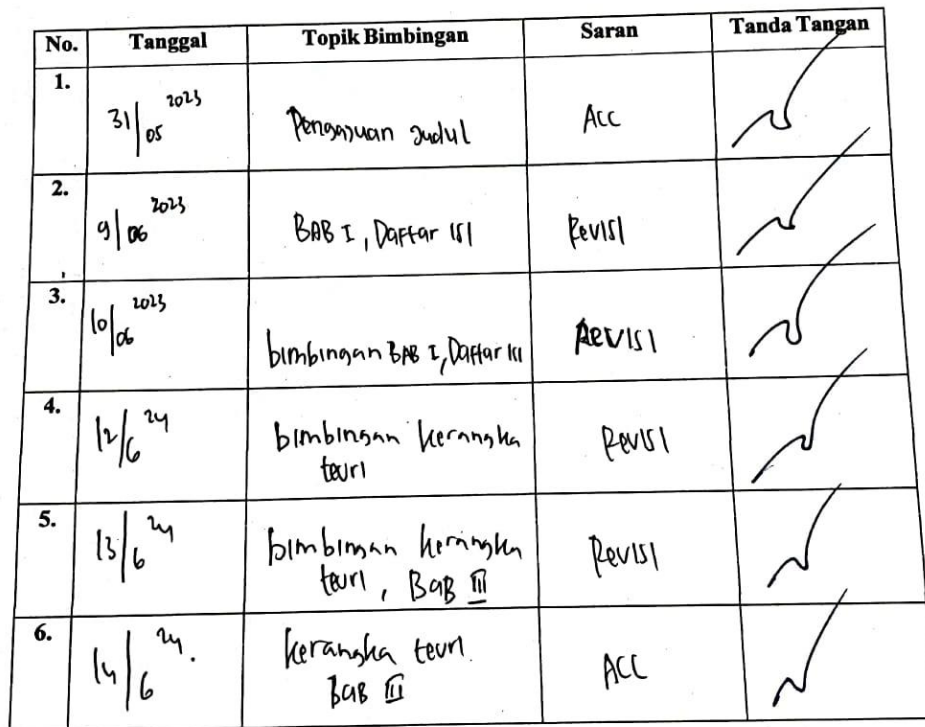 No. Tanggal Topik Bimbingan Saran Tanda Tangan
1. 31/05 2023 Pengajuan Judul ACC
2. 9/06 2023 BAB I, Daftar isi Revisi
3. 10/06 2023 bimbingan BAB I, Daftar isi Revisi
4. 12/6 24 bimbingan kerangka teori Revisi
5. 13/6 24 bimbingan kerangka teori, BaB III Revisi
6. 14/6 24. kerangka teori BaB III ACC